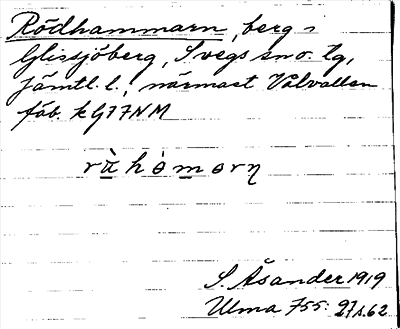 Rödhammarn, berg i
Glissjöberg, Svegs sn o. tg,
Jämtl. l., närmast Vålvallen
fäb. k G 77 NM
rɑ̀hómorn
S. Åsander 1919
Ulma 755: 27 s. 62